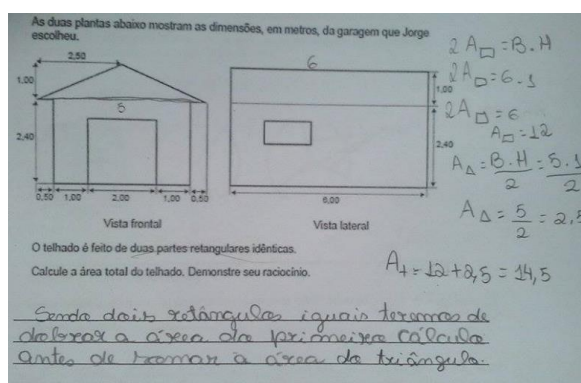 As duas plantas abaixo mostram as dimensões, em metros, da garagem que Jorge
escolheu.
2,50
1,00
5
2,40
0,50 1,00 2,00 1,00 0,50
Vista frontal
6
1,00
2,40
6,00
Vista lateral
2A▭ = B.H
2A▭ = 6.1
2A▭ = 6
A▭ = 12
A△ = B.H/2 = 5.1/2
A△ = 5/2 = 2,5
At = 12 + 2,5 = 14,5
O telhado é feito de duas partes retangulares idênticas.
Calcule a área total do telhado. Demonstre seu raciocínio.
Sendo dois retângulos iguais teremos de
dobrar a área do primeiro cálculo
antes de somar a área do triângulo.